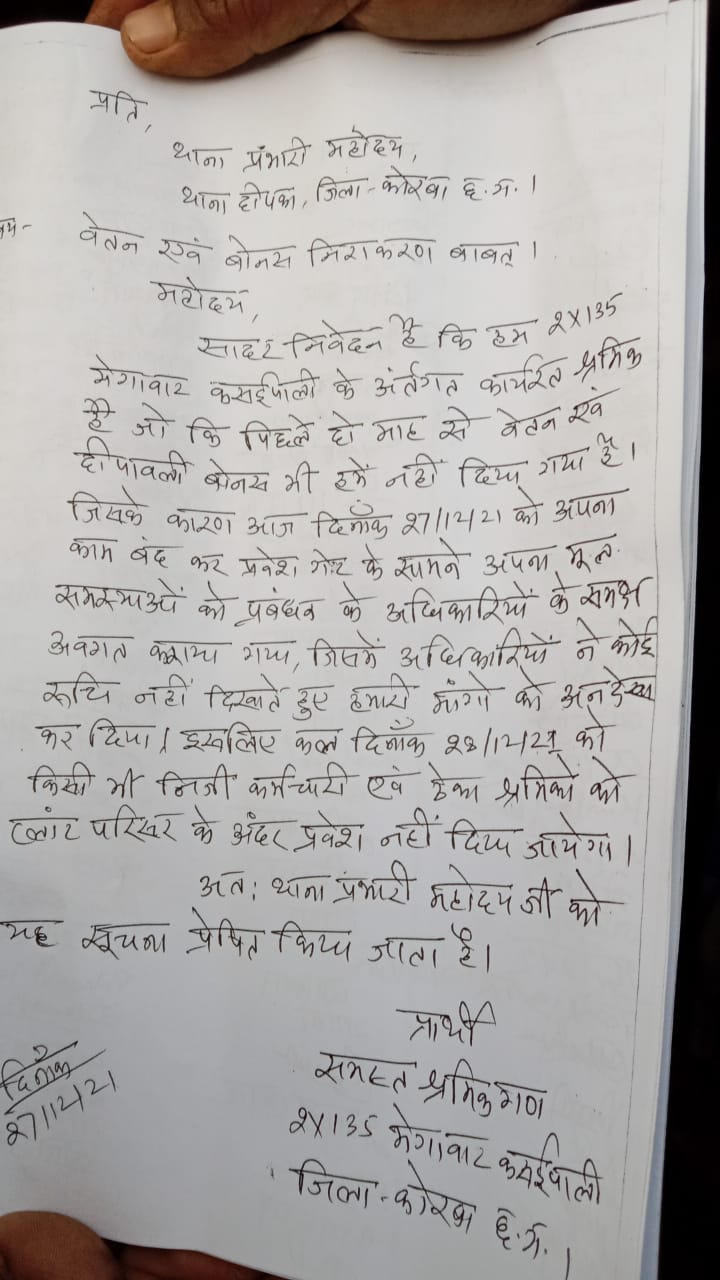 प्रति,
थाना प्रभारी महोदय,
थाना दीपका, जिला-कोरबा छ.ग.।
वेतन एवं बोनस निराकरण बाबत्।
महोदय,
सादर निवेदन है कि हम 2X135
मेगावाट कसईपाली के अंर्तगत कार्यरत श्रमिक
है जो कि पिछले दो माह से वेतन एवं
दीपावली बोनस भी हमें नहीं दिया गया है।
जिसके कारण आज दिनाँक 27/12/21 को अपना
काम बंद कर प्रवेश गेट के सामने अपना मूल
समस्याओं को प्रबंधन के अधिकारियों के समक्ष
अवगत कराया गया, जिसमें अधिकारियों ने कोई
रूचि नहीं दिखाते हुए हमारी मांगो को अनदेखा
कर दिया। इसलिए कल दिनाँक 28/12/21 को
किसी भी निजी कर्मचारी एवं ठेका श्रमिकों को
प्लांट परिसर के अंदर प्रवेश नहीं दिया जायेगा।
अतः थाना प्रभारी महोदय जी को
यह सूचना प्रेषित किया जाता है।
प्रार्थी
समस्त श्रमिकगण
2X135 मेगावाट कसईपाली
जिला-कोरबा छ.ग.।
दिनाँक
27/12/21